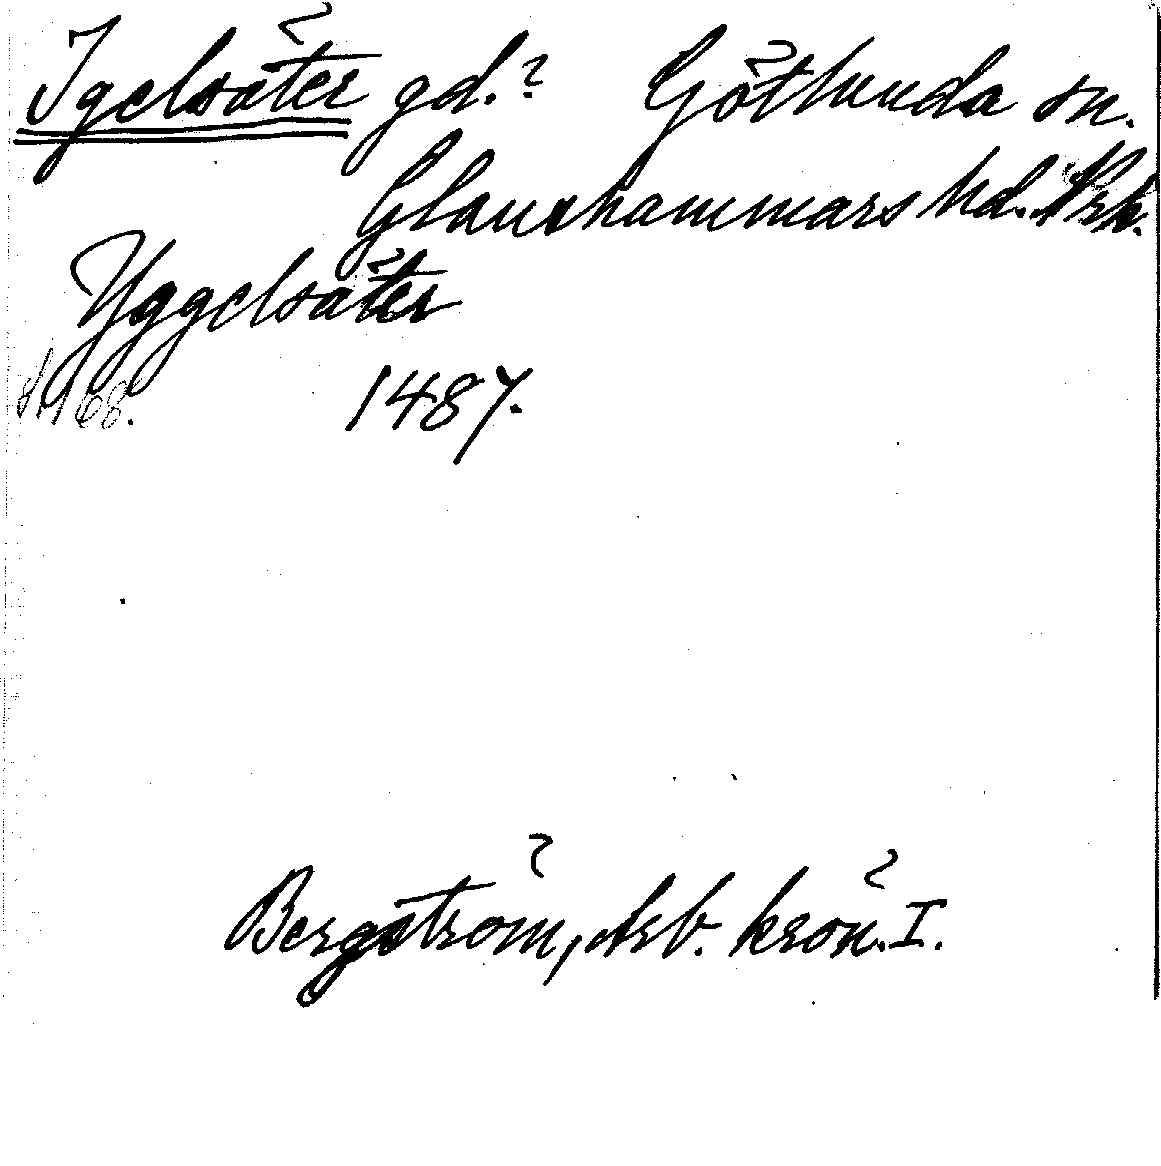 Igelsäter gd.? Götlunda sn.
Glanshammars hd.
Yggelsäter
1487.
Bergström, Arb. krön. I.